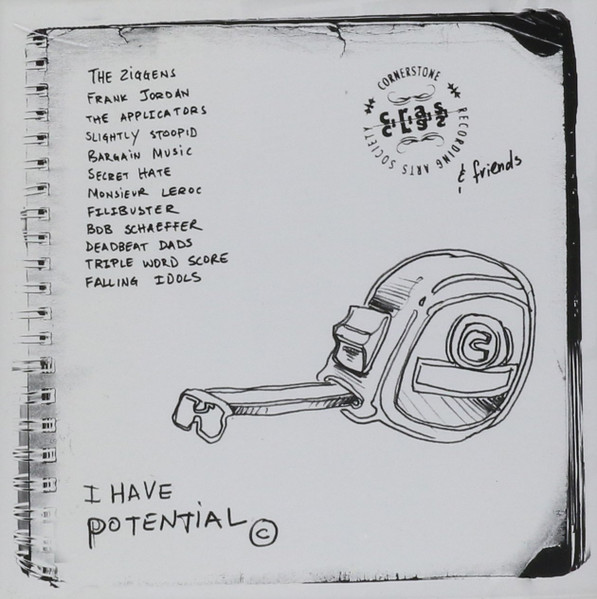 THE ZIGGENS
FRANK JORDAN
THE APPLICATORS
SLIGHTLY STOOPID
BARGAIN MUSIC
SECRET HATE
MONSIEUR LEROC
FILIBUSTER
BOB SCHAEFFER
DEADBEAT DADS
TRIPLE WORD SCORE
FALLING IDOLS
CORNERSTONE
RECORDING ARTS SOCIETY
cras
& friends
C
I HAVE
POTENTIAL ©